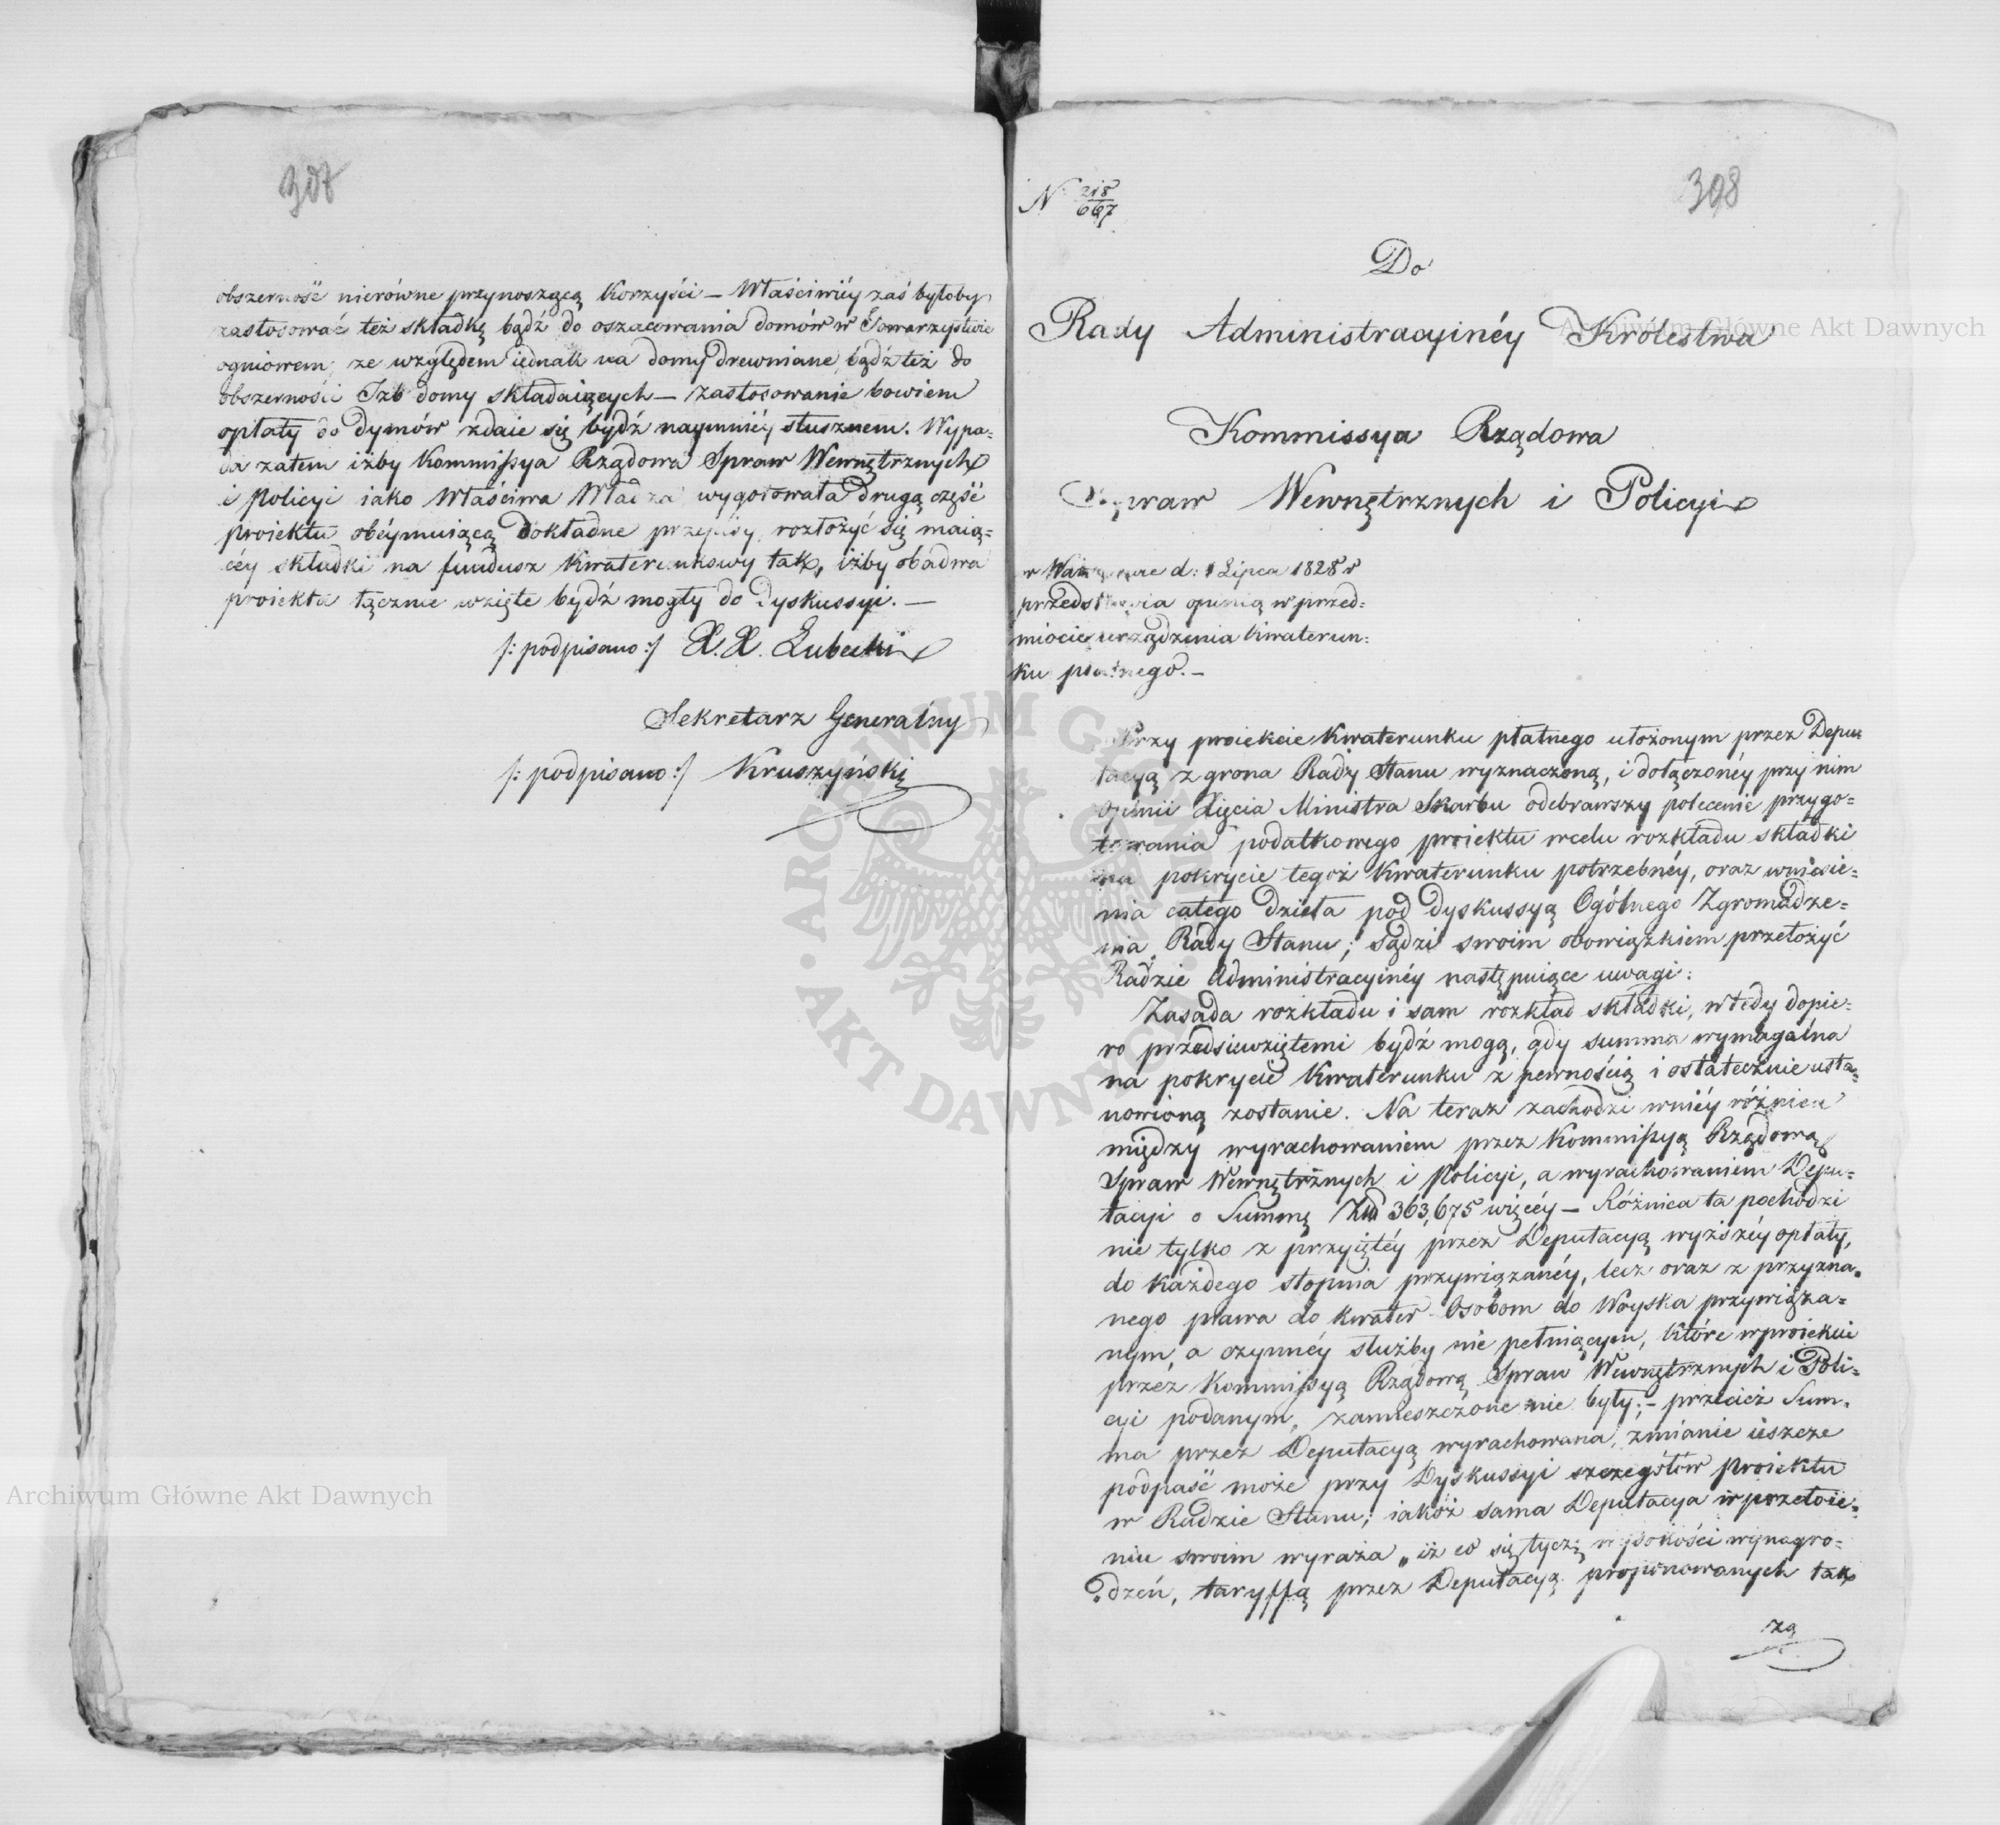 307
obszerność nierówne przynoszącą Korzyści — Właściwiéy zaś byłoby
zastosować też składkę bądź do oszacowania domów w Towarzystwie
ogniowem, ze względem iednak na domy drewniane, bądź też do
obszerności Izb domy składaiących — zastosowanie bowiem
opłaty do dymów zdaie się bydź naymniéy słusznem. Wypa=
da zatem iżby Kommissya Rządowa Spraw Wewnętrznych
i Policyi iako Właściwa Władza wygotowała drugą część
proiektu obéymuiącą Dokładne przepisy rozłożyć się maią=
céy składki na fundusz Kwaterunkowy tak, iżby obadwa
proiekta łącznie wzięte bydź mogły do Dyskussyi. —
/: podpisano :/ X. X. Lubecki
Sekretarz Generalny
/: podpisano :/ Kruszyński
308
N 218/667
Do
Rady Administracyinéy Królestwa
Kommissya Rządowa
Spraw Wewnętrznych i Policyi
w Warszawie d: 1 Lipca 1828 r
przedstawia opinią w przed=
miocie urządzenia Kwaterun=
ku płatnego. —
Przy proiekcie Kwaterunku płatnego ułożonym przez Depu
tacyą z grona Rady Stanu wyznaczoną, i dołączonéy przy nim
opinii Xięcia Ministra Skarbu odebrawszy polecenie przygo=
towania podatkowego proiektu wcelu rozkładu składki
na pokrycie tegoż Kwaterunku potrzebnéy, oraz wniesie=
nia całego dzieła pod dyskussyą Ogólnego Zgromadze=
nia Rady Stanu; sądzi swoim obowiązkiem przełożyć
Radzie Administracyinéy następuiące uwagi:
Zasada rozkładu i sam rozkład składki, wtedy dopie=
ro przedsięwziętemi bydź mogą, gdy summa wymagalna
na pokrycie Kwaterunku z pewnością i ostatecznie usta=
nowioną zostanie. Na teraz zachodzi wniéy różnica
między wyrachowaniem przez Kommissyą Rządową
Spraw Wewnętrznych i Policyi, a wyrachowaniem Depu=
tacyi o Summę Złd 363,675 więcéy — Różnica ta pochodzi
nie tylko z przyiętéy przez Deputacyą wyższéy opłaty,
do każdego stopnia przywiązanéy, lecz oraz z przyzna=
nego prawa do kwater Osobom do Woyska przywiąza=
nym, a czynnéy służby nie pełniącym, które wproiekcie
przez Kommissyą Rządową Spraw Wewnętrznych i Poli=
cyi podanym, zamieszczone nie były; — przecież Sum=
ma przez Deputacyą wyrachowana, zmianie ieszcze
podpaść może przy Dyskussyi szczegółów proiektu
w Radzie Stanu; iakoż sama Deputacya w przełoże=
niu swoim wyraża „iż co się tyczą wysokości wynagro=
dzeń, taryffą przez Deputacyą proponowanych tak
za
Archiwum Główne Akt Dawnych
Archiwum Główne Akt Dawnych
ARCHIWUM GŁÓWNE · AKT DAWNYCH ·